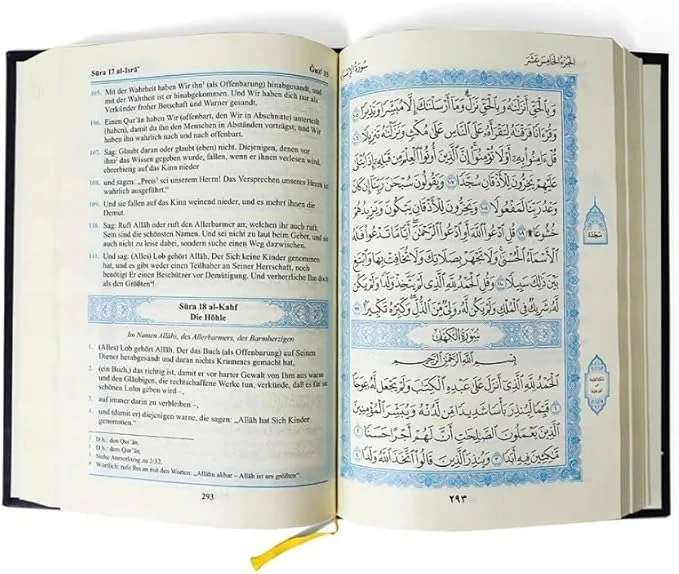 Sūra 17 al-Isrā'
Ǧuz' 15
105. Mit der Wahrheit haben Wir ihn¹ (als Offenbarung) hinabgesandt, und
mit der Wahrheit ist er hinabgekommen. Und Wir haben dich nur als
Verkünder froher Botschaft und Warner gesandt.
106. Einen Qur'ān haben Wir (offenbart, den Wir in Abschnitte) unterteilt
(haben), damit du ihn den Menschen in Abständen vorträgst; und Wir ha-
ben ihn wahrlich nach und nach offenbart.
107. Sag: Glaubt daran oder glaubt (eben) nicht. Diejenigen, denen vor
ihm² das Wissen gegeben wurde, fallen, wenn er ihnen verlesen wird,
ehrerbietig auf das Kinn nieder
108. und sagen: „Preis³ sei unserem Herrn! Das Versprechen unseres Herrn ist
wahrlich ausgeführt.“
109. Und sie fallen auf das Kinn weinend nieder, und es mehrt ihnen die
Demut.
110. Sag: Ruft Allāh oder ruft den Allerbarmer an; welchen ihr auch ruft,
Sein sind die schönsten Namen. Und sei nicht zu laut beim Gebet, und sei
auch nicht zu leise dabei, sondern suche einen Weg dazwischen.
111. Und sag: (Alles) Lob gehört Allāh, Der Sich keine Kinder genommen
hat, und es gibt weder einen Teilhaber an Seiner Herrschaft, noch
benötigt Er einen Beschützer vor Demütigung. Und verherrliche Ihn doch
als den Größten⁴!
Sūra 18 al-Kahf
Die Höhle
Im Namen Allāhs, des Allerbarmers, des Barmherzigen
1. (Alles) Lob gehört Allāh, Der das Buch (als Offenbarung) auf Seinen
Diener herabgesandt und daran nichts Krummes gemacht hat,
2. (ein Buch,) das richtig ist, damit er vor harter Gewalt von Ihm aus warne
und den Gläubigen, die rechtschaffene Werke tun, verkünde, daß es für sie
schönen Lohn geben wird –,
3. auf immer darin zu verbleiben –,
4. und (damit er) diejenigen warne, die sagen: „Allāh hat Sich Kinder
genommen.“
¹ D.h.: den Qur'ān.
² D.h.: den Qur'ān.
³ Siehe Anmerkung zu 2/32.
⁴ Wörtlich: rufe Ihn an mit den Worten: „Allāhu akbar – Allāh ist am größten“.
293
الجزء الخامس عشر
سورة الإسراء
وَبِالْحَقِّ أَنزَلْنَاهُ وَبِالْحَقِّ نَزَلَ وَمَا أَرْسَلْنَاكَ إِلَّا مُبَشِّرًا وَنَذِيرًا ١٠٥
وَقُرْآنًا فَرَقْنَاهُ لِتَقْرَأَهُ عَلَى النَّاسِ عَلَىٰ مُكْثٍ وَنَزَّلْنَاهُ تَنزِيلًا ١٠٦
قُلْ آمِنُوا بِهِ أَوْ لَا تُؤْمِنُوا إِنَّ الَّذِينَ أُوتُوا الْعِلْمَ مِن قَبْلِهِ إِذَا يُتْلَىٰ
عَلَيْهِمْ يَخِرُّونَ لِلْأَذْقَانِ سُجَّدًا ١٠٧ وَيَقُولُونَ سُبْحَانَ رَبِّنَا إِن كَانَ
وَعْدُ رَبِّنَا لَمَفْعُولًا ١٠٨ وَيَخِرُّونَ لِلْأَذْقَانِ يَبْكُونَ وَيَزِيدُهُمْ
خُشُوعًا ۩ ١٠٩ قُلِ ادْعُوا اللَّهَ أَوِ ادْعُوا الرَّحْمَٰنَ أَيًّا مَّا تَدْعُوا فَلَهُ
الْأَسْمَاءُ الْحُسْنَىٰ وَلَا تَجْهَرْ بِصَلَاتِكَ وَلَا تُخَافِتْ بِهَا وَابْتَغِ
بَيْنَ ذَٰلِكَ سَبِيلًا ١١٠ وَقُلِ الْحَمْدُ لِلَّهِ الَّذِي لَمْ يَتَّخِذْ وَلَدًا وَلَمْ يَكُن
لَّهُ شَرِيكٌ فِي الْمُلْكِ وَلَمْ يَكُن لَّهُ وَلِيٌّ مِّنَ الذُّلِّ وَكَبِّرْهُ تَكْبِيرًا ١١١
سُورَةُ الْكَهْفِ
بِسْمِ اللَّهِ الرَّحْمَٰنِ الرَّحِيمِ
الْحَمْدُ لِلَّهِ الَّذِي أَنزَلَ عَلَىٰ عَبْدِهِ الْكِتَابَ وَلَمْ يَجْعَل لَّهُ عِوَجًا
١ قَيِّمًا لِّيُنذِرَ بَأْسًا شَدِيدًا مِّن لَّدُنْهُ وَيُبَشِّرَ الْمُؤْمِنِينَ
الَّذِينَ يَعْمَلُونَ الصَّالِحَاتِ أَنَّ لَهُمْ أَجْرًا حَسَنًا ٢
مَّاكِثِينَ فِيهِ أَبَدًا ٣ وَيُنذِرَ الَّذِينَ قَالُوا اتَّخَذَ اللَّهُ وَلَدًا ٤
سجدة
٢٩٣